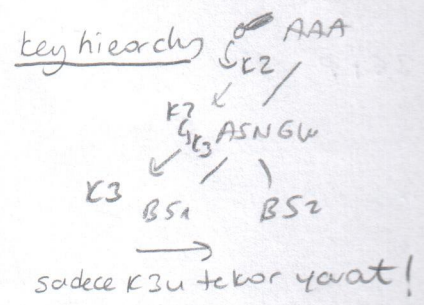 AAA
key hierarchy
K2
K2
K3 ASNGW
K3
BS1 BS2
sadece K3ü tekrar yarat!